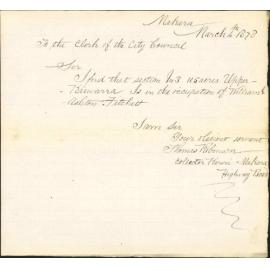 Makara
March 4th 1878
To the Clerk of the City Council
Sir
I find that section No 3 Upper-
Kaiwarra Is in the occupation of William
Ashton Fitchett
I am sir
Your obedient servant
Thomas Robinson
Collector Horri - Makara
Highway Board